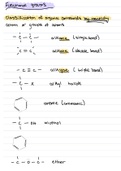 Functional groups
Classification of organic compounds by reactivity
atoms or groups of atoms
- C - C - alkane (single bond)
C = C alkene (double bond)
- C ≡ C - alkyne (triple bond)
- C - X alkyl halide
arene (aromatic)
- C - OH alcohol
- C - O - C - ether